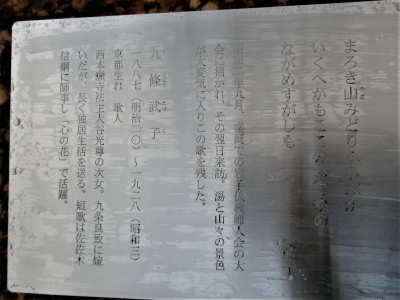 まろき山みどり
いくへかも
ながめすがしも
年九月、盛岡での岩手仏教婦人会の大
会に招かれ、その翌日来訪。湯と山々の景色
が大変気に入りこの歌を残した。
九條武子
一八八七（明治二〇）～一九二八（昭和三）
京都生れ 歌人
西本願寺法主大谷光尊の次女。九条良致に嫁
いだが、長く独居生活を送る。短歌は佐佐木
信綱に師事し「心の花」で活躍。